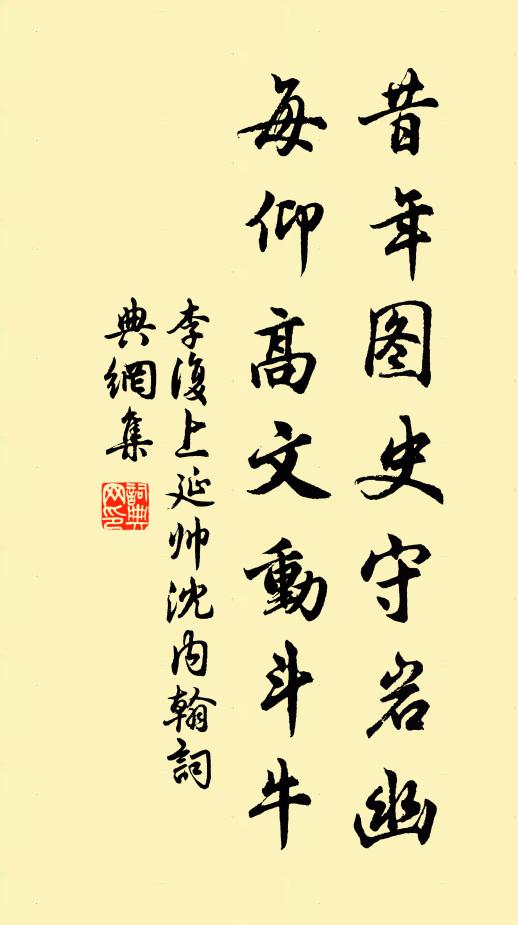 昔年图史守岩幽
每仰高文動斗牛
李復上延帅沈内翰詞
典網集
詞典网印